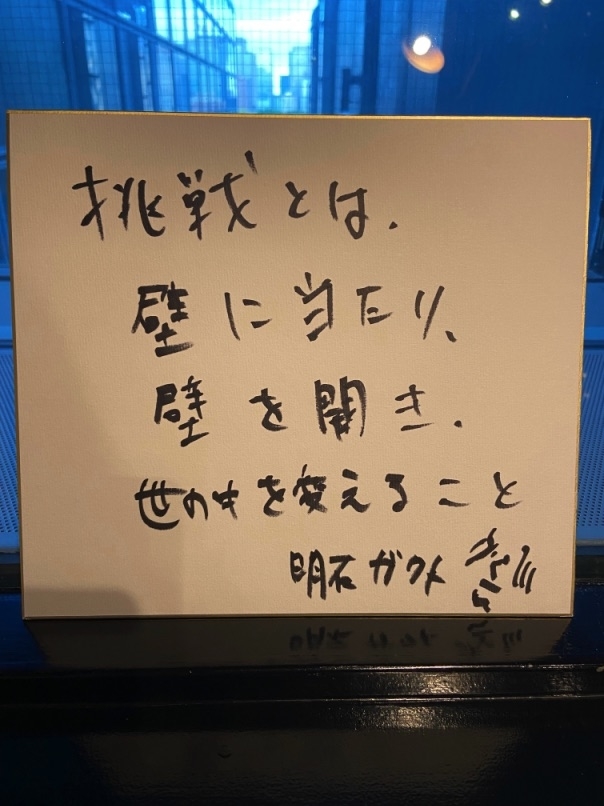 挑戦とは、
壁に当たり、
壁を開き、
世の中を変えること
明石ガクト